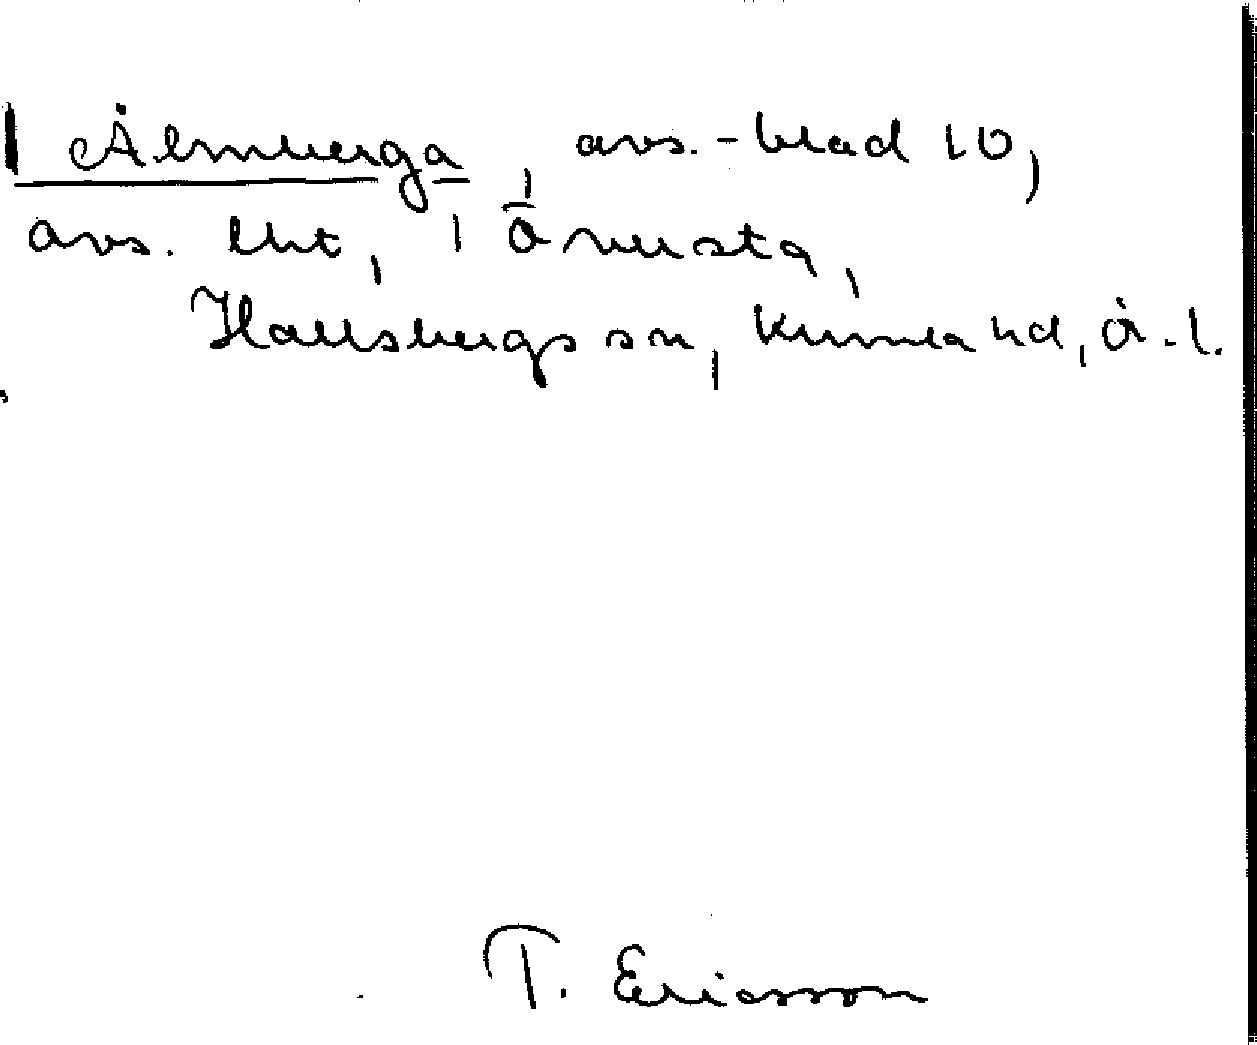 Älmberga, avs.-blad 10,
avs. lht, i Översta,
Hallsbergs sn, Kumla hd, Ör. l.
T. Ericsson